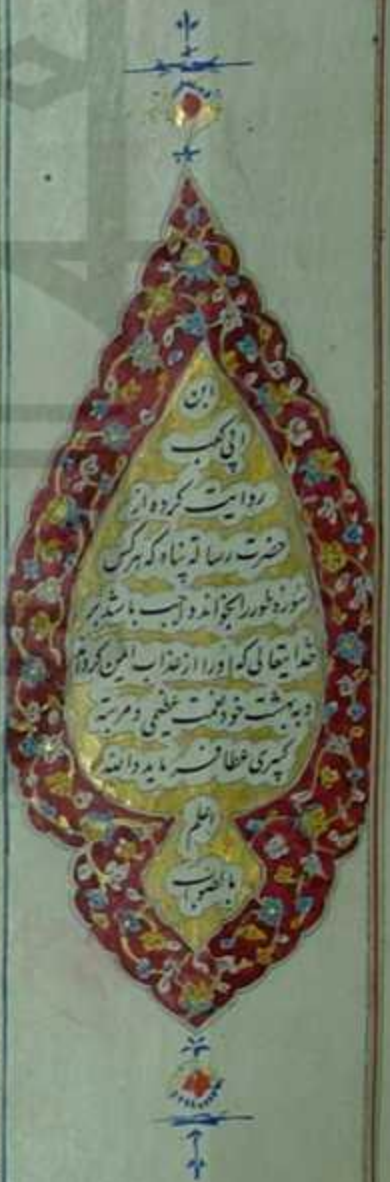 ابن
ابی کعب
روایت کرده از
حضرت رسالة پناه که هرکس
سوره طور را بخواند واجب باشد بر
خدایتعالی که او را از عذاب ایمن کرداند
و به بهشت خود بنعمت عظیمی و مرتبه
کبیری عطا فرماید والله
اعلم
بالصواب